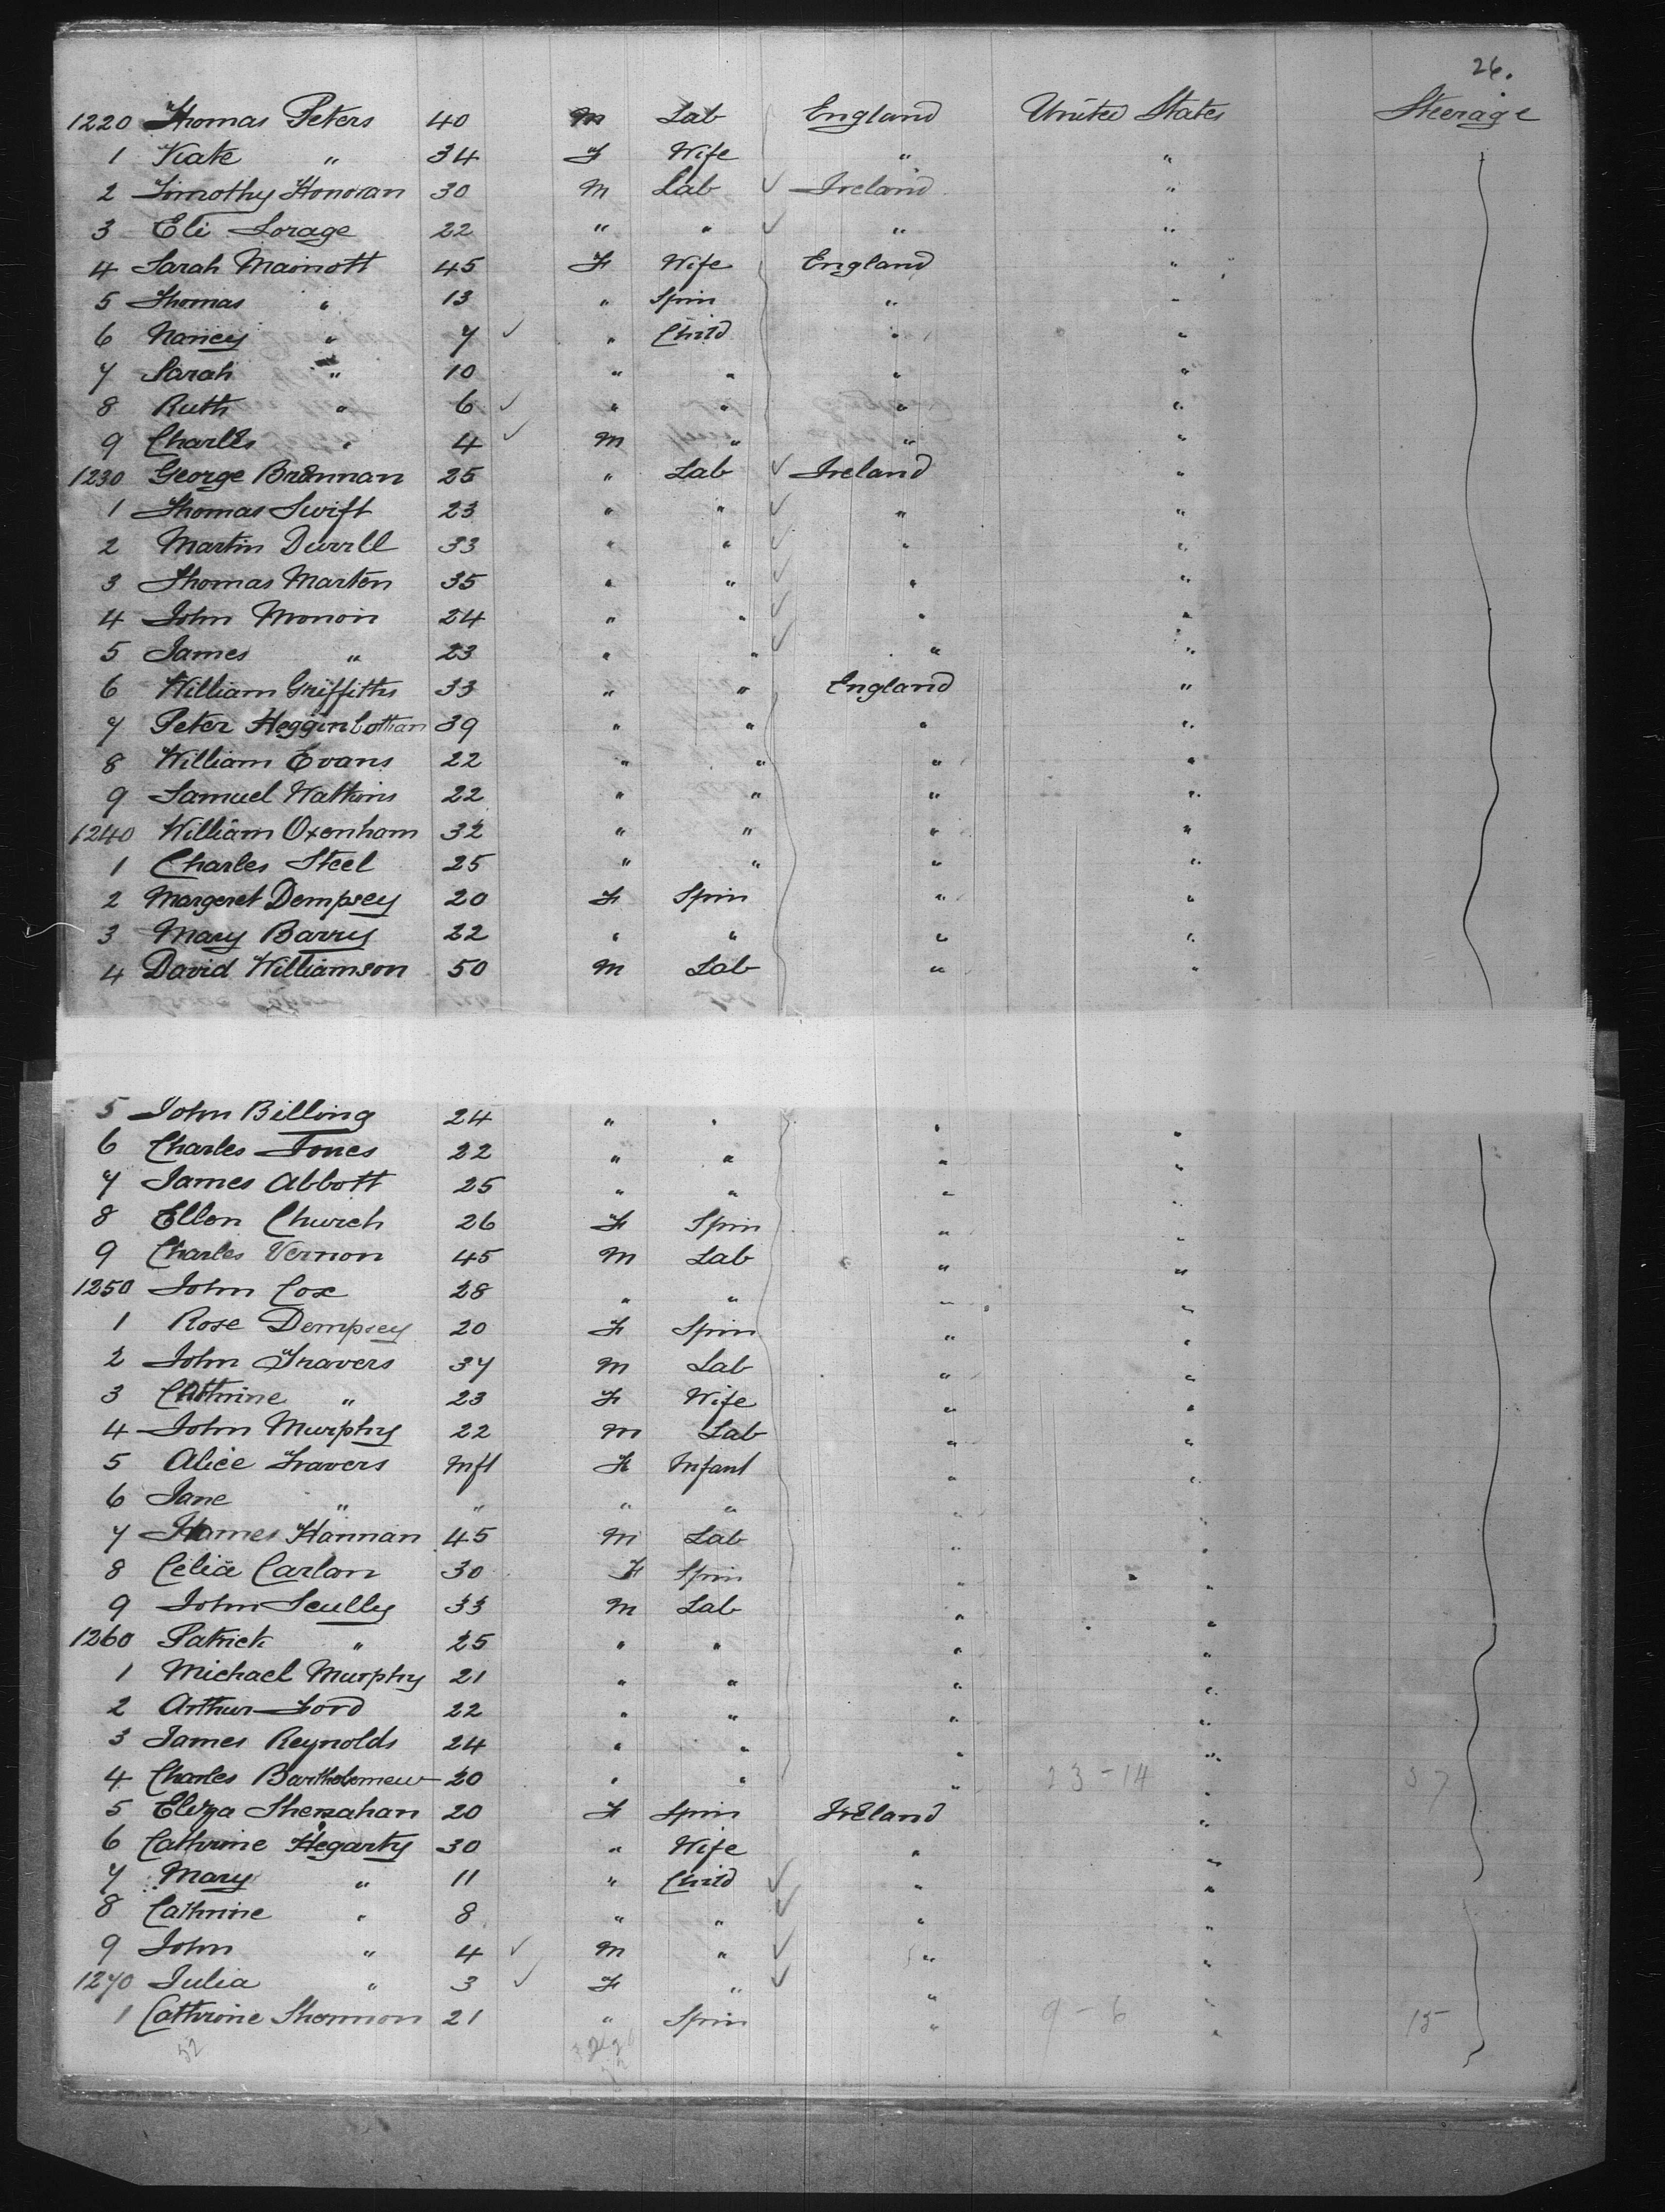 26.
1220 Thomas Peters 40 M Lab England United States Steerage
1 Kate " 34 F Wife " "
2 Timothy Honovan 30 M Lab ✓ Ireland "
3 Eli Sorage 22 " " ✓ " "
4 Sarah Mainott 45 F Wife England "
5 Thomas " 13 " Spin " "
6 Nancy " 7 ✓ " Child " "
7 Sarah " 10 " " " "
8 Ruth " 6 ✓ " " " "
9 Charles " 4 ✓ M " " "
1230 George Brennan 25 " Lab ✓ Ireland "
1 Thomas Swift 23 " " ✓ " "
2 Martin Durrll 33 " " ✓ " "
3 Thomas Marten 35 " " ✓ " "
4 John Monoin 24 " " ✓ " "
5 James " 23 " " ✓ " "
6 William Griffiths 33 " " England "
7 Peter Hegginbothan 39 " " " "
8 William Evans 22 " " " "
9 Samuel Watkins 22 " " " "
1240 William Oxenham 32 " " " "
1 Charles Steel 25 " " " "
2 Margeret Dempsey 20 F Spin " "
3 Mary Barry 22 " " " "
4 David Williamson 50 M Lab " "
5 John Billing 24 " " " "
6 Charles Jones 22 " " " "
7 James Abbott 25 " " " "
8 Ellen Church 26 F Spin " "
9 Charles Vernon 45 M Lab " "
1250 John Cox 28 " " " "
1 Rose Dempsey 20 F Spin " "
2 John Travers 37 M Lab " "
3 Cathrine " 23 F Wife " "
4 John Murphy 22 M Lab " "
5 Alice Travers Inft F Infant " "
6 Jane " " " " " "
7 James Hannan 45 M Lab " "
8 Celia Carlan 30 F Spin " "
9 John Scully 33 M Lab " "
1260 Patrick " 25 " " " "
1 Michael Murphy 21 " " " "
2 Arthur Ford 22 " " " "
3 James Reynolds 24 " " " "
4 Charles Bartholomew 20 " " " 23-14 " 37
5 Eliza Shenahan 20 F Spin Ireland "
6 Cathrine Hegarty 30 " Wife " "
7 Mary " 11 " Child ✓ " "
8 Cathrine " 8 " " ✓ " "
9 John " 4 ✓ M " ✓ " "
1270 Julia " 3 ✓ F " ✓ " "
1 Cathrine Shannon 21 " Spin " 9-6 " 15
52